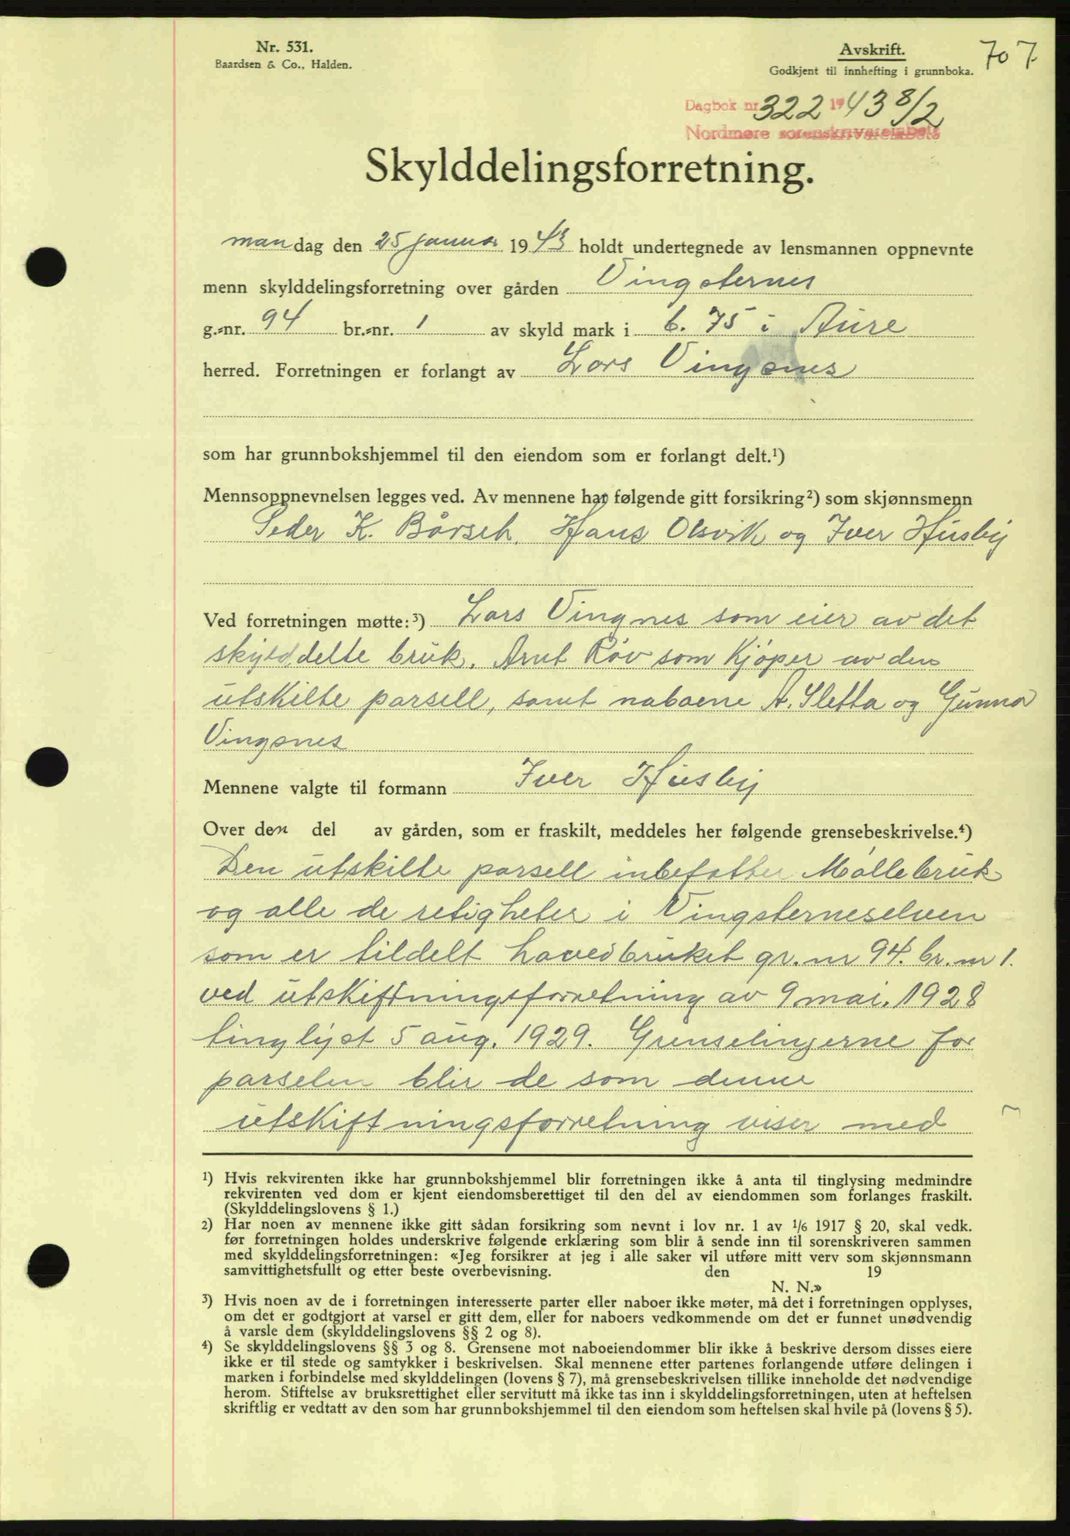 Nr. 531.
Baardsen & Co., Halden.
Avskrift.
Godkjent til innhefting i grunnboka.
707
Dagbok nr. 322 1943 8/2
Nordmøre sorenskriverembete
Skylddelingsforretning.
mandag den 25 januar 1943 holdt undertegnede av lensmannen oppnevnte
menn skylddelingsforretning over gården Vingsternes
g.-nr. 94 br.-nr. 1 av skyld mark i 6.75 i Aure
herred. Forretningen er forlangt av Lars Vingsnes
som har grunnbokshjemmel til den eiendom som er forlangt delt.¹)
Mennsoppnevnelsen legges ved. Av mennene har følgende gitt forsikring²) som skjønnsmenn
Peder K. Børseth, Hans Olsvik og Iver Husby
Ved forretningen møtte:³) Lars Vingnes som eier av det
skylddelte bruk. Arnt Røv som Kjøper av den
utskilte parsell, samt naboene A. Sletta og Gunnar
Vingsnes
Mennene valgte til formann Iver Husby
Over den del av gården, som er fraskilt, meddeles her følgende grensebeskrivelse.⁴)
Den utskilte parsell inbefatter Møllebruk
og alle de retigheter i Vingsterneselven
som er tildelt hovedbruket gr. nr 94. br. nr 1.
ved utskiftningsforretning av 9 mai. 1928
tinglyst 5 aug. 1929. Grenselingerne for
parselen blir de som denne
utskiftningsforretning viser med
¹) Hvis rekvirenten ikke har grunnbokshjemmel blir forretningen ikke å anta til tinglysing medmindre
rekvirenten ved dom er kjent eiendomsberettiget til den del av eiendommen som forlanges fraskilt.
(Skylddelingslovens § 1.)
²) Har noen av mennene ikke gitt sådan forsikring som nevnt i lov nr. 1 av 1/6 1917 § 20, skal vedk.
før forretningen holdes underskrive følgende erklæring som blir å sende inn til sorenskriveren sammen
med skylddelingsforretningen: «Jeg forsikrer at jeg i alle saker vil utføre mitt verv som skjønnsmann
samvittighetsfullt og etter beste overbevisning. den 19
N. N.»
³) Hvis noen av de i forretningen interesserte parter eller naboer ikke møter, må det i forretningen opplyses,
om det er godtgjort at varsel er gitt dem, eller for naboers vedkommende om det er funnet unødvendig
å varsle dem (skylddelingslovens §§ 2 og 8).
⁴) Se skylddelingslovens §§ 3 og 8. Grensene mot naboeiendommer blir ikke å beskrive dersom disses eiere
ikke er til stede og samtykker i beskrivelsen. Skal mennene etter partenes forlangende utføre delingen i
marken i forbindelse med skylddelingen (lovens § 7), må grensebeskrivelsen tillike inneholde det nødvendige
herom. Stiftelse av bruksrettighet eller servitutt må ikke tas inn i skylddelingsforretningen, uten at heftelsen
skriftlig er vedtatt av den som har grunnbokshjemmel til den eiendom som heftelsen skal hvile på (lovens § 5).